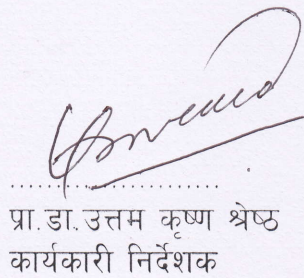 प्रा.डा.उत्तम कृष्ण श्रेष्ठ
कार्यकारी निर्देशक